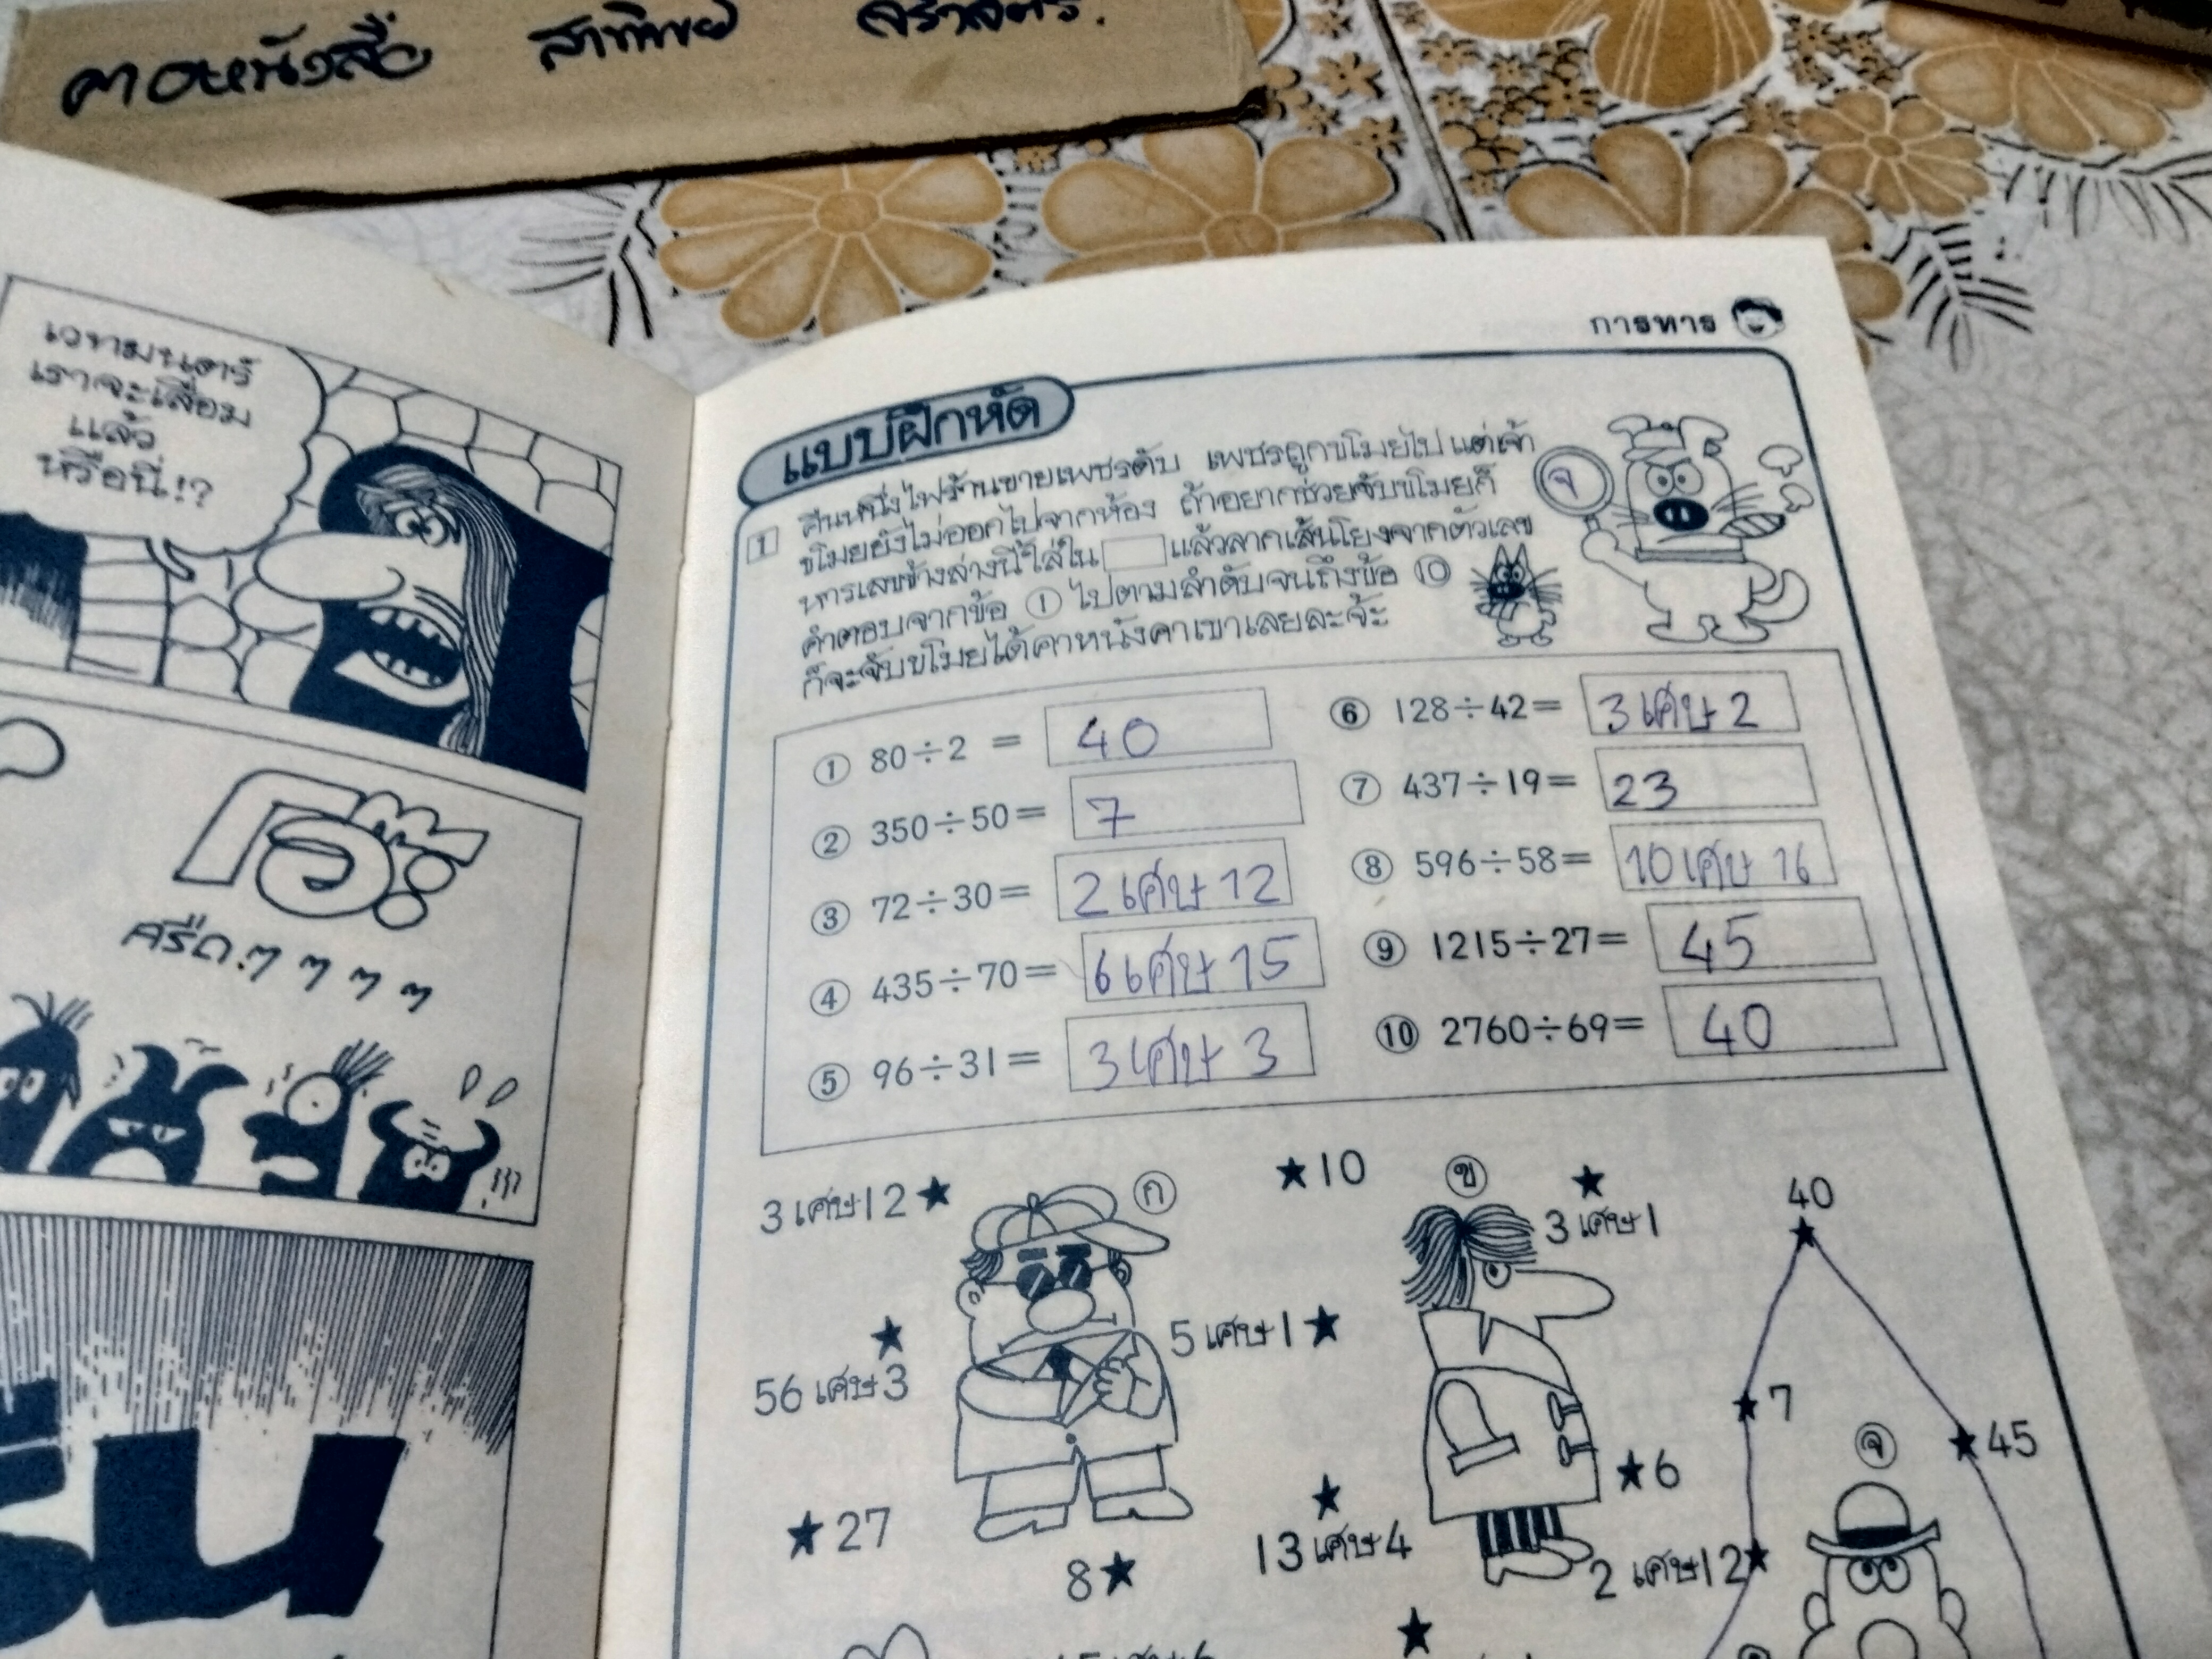 คาดหนังสือ สาทิพย์
เวทมนตร์
เราจะเสื่อม
แล้ว
หรือนี่!?
โอ๊ะ
ครืด.ๆ ๆ ๆ ๆ
การหาร
แบบฝึกหัด
1 คืนหนึ่งไฟร้านขายเพชรดับ เพชรถูกขโมยไป แต่เจ้า
ขโมยยังไม่ออกไปจากห้อง ถ้าอยากช่วยจับขโมยก็
หารเลขข้างล่างนี้ใส่ใน แล้วลากเส้นโยงจากตัวเลข
คำตอบจากข้อ ① ไปตามลำดับจนถึงข้อ ⑩
ก็จะจับขโมยได้คาหนังคาเขาเลยละจ้ะ
จ
① 80÷2 = 40
② 350÷50= 7
③ 72÷30= 2 เศษ 12
④ 435÷70= 6 เศษ 15
⑤ 96÷31= 3 เศษ 3
⑥ 128÷42= 3 เศษ 2
⑦ 437÷19= 23
⑧ 596÷58= 10 เศษ 16
⑨ 1215÷27= 45
⑩ 2760÷69= 40
3 เศษ 12 ★
ก
★ 10
ข
★
3 เศษ 1
40
★
★
56 เศษ 3
5 เศษ 1 ★
★ 7
★ 45
จ
★ 27
8 ★
★
13 เศษ 4
★ 6
2 เศษ 12 ★
★